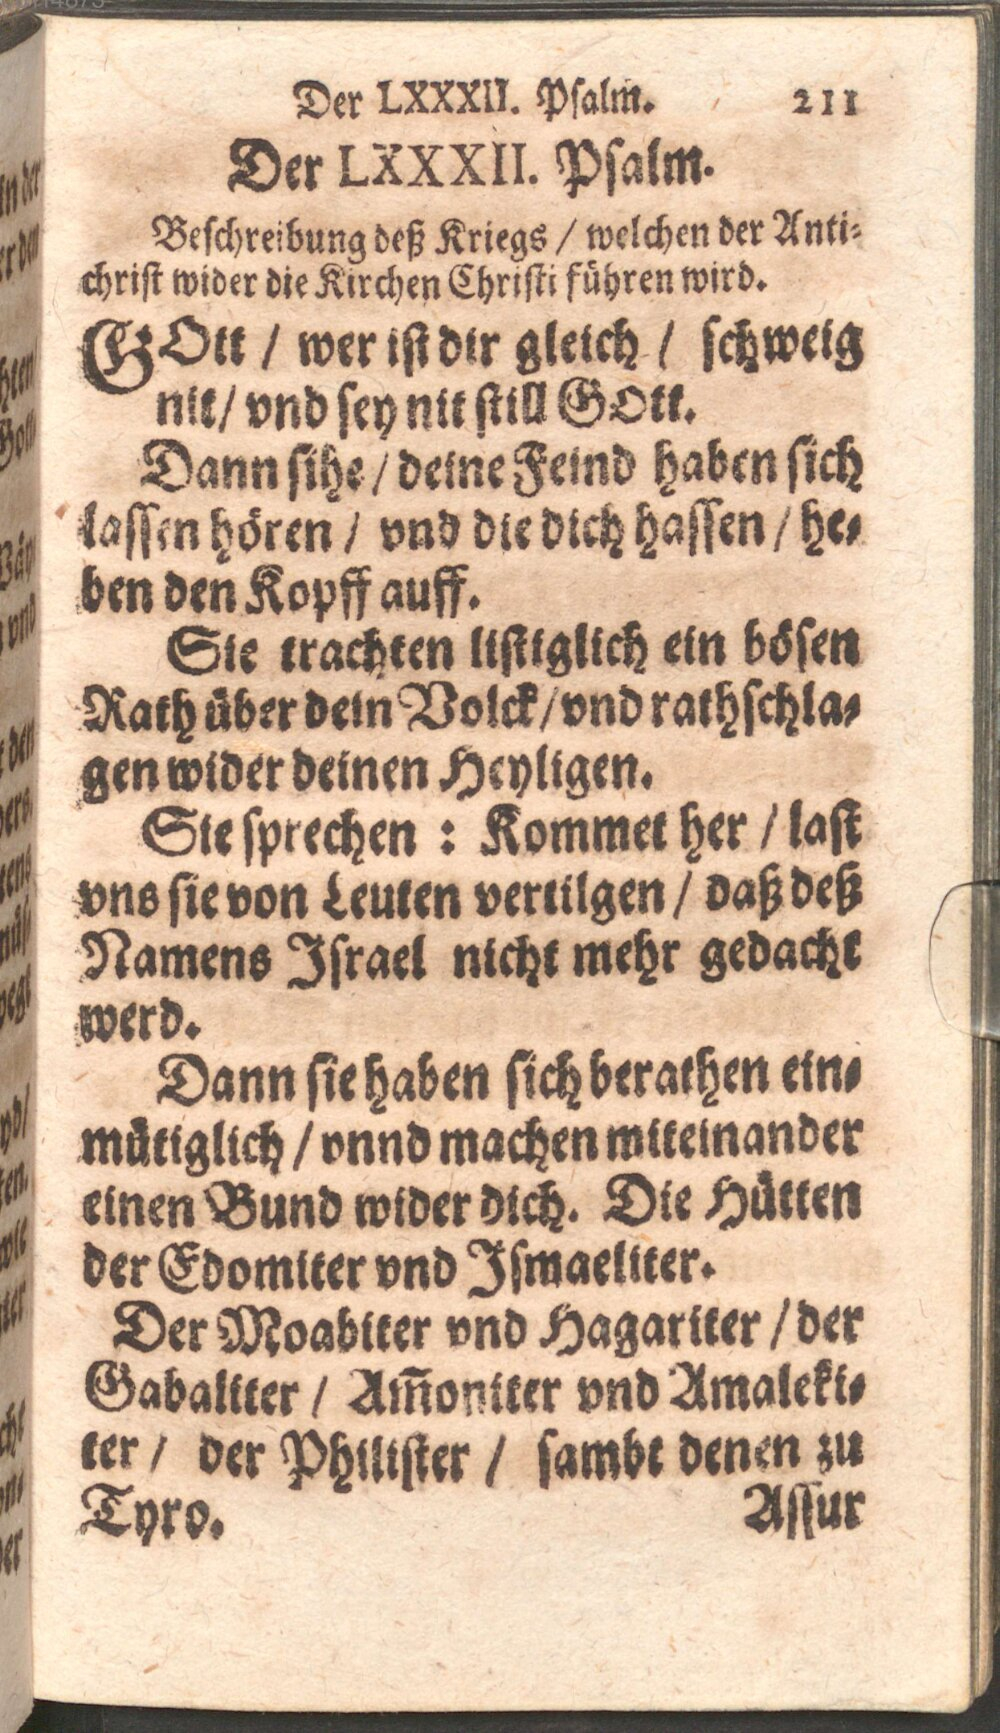 Der LXXXII. Psalm. 211
Der LXXXII. Psalm.
Beschreibung deß Kriegs / welchen der Anti-
christ wider die Kirchen Christi führen wird.
GOtt / wer ist dir gleich / schweig
nit / vnd sey nit still GOtt.
Dann sihe / deine Feind haben sich
lassen hören / vnd die dich hassen / he-
ben den Kopff auff.
Sie trachten listiglich ein bösen
Rath über dein Volck / vnd rathschla-
gen wider deinen Heyligen.
Sie sprechen : Kommet her / last
vns sie von Leuten vertilgen / daß deß
Namens Israel nicht mehr gedacht
werd.
Dann sie haben sich berathen ein-
mütiglich / vnnd machen miteinander
einen Bund wider dich. Die Hütten
der Edomiter vnd Ismaeliter.
Der Moabiter vnd Hagariter / der
Gabaliter / Am̃oniter vnd Amaleki-
ter / der Philister / sambt denen zu
Tyro. Assur